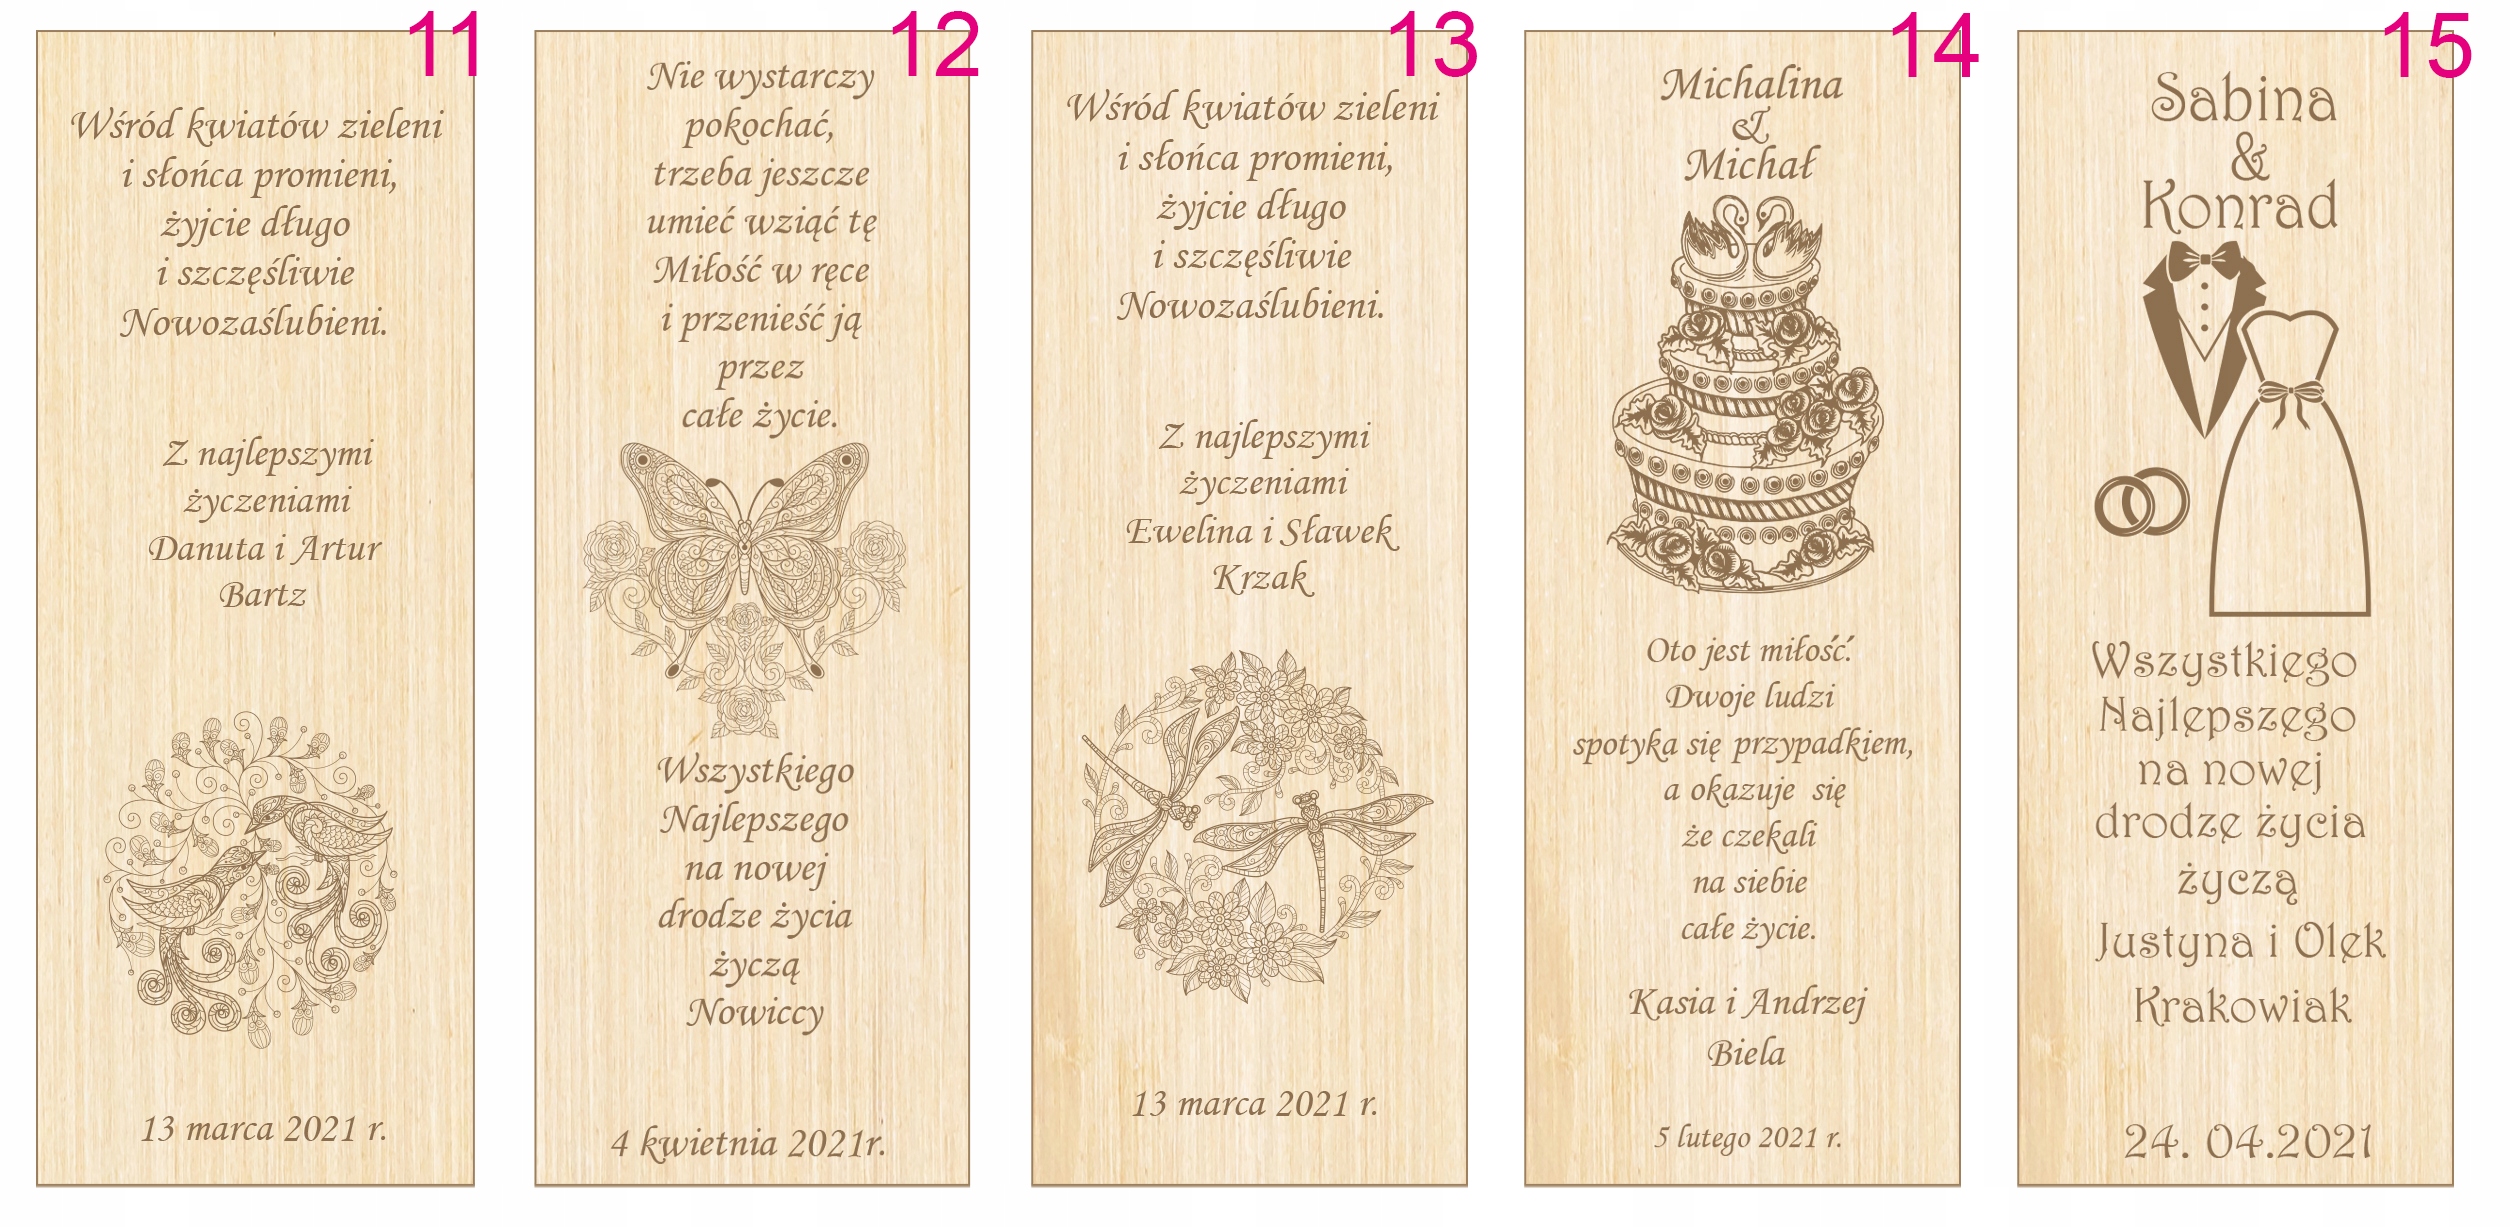 11
Wśród kwiatów zieleni
i słońca promieni,
żyjcie długo
i szczęśliwie
Nowozaślubieni.
Z najlepszymi
życzeniami
Danuta i Artur
Bartz
13 marca 2021 r.
12
Nie wystarczy
pokochać,
trzeba jeszcze
umieć wziąć tę
Miłość w ręce
i przenieść ją
przez
całe życie.
Wszystkiego
Najlepszego
na nowej
drodze życia
życzą
Nowiccy
4 kwietnia 2021r.
13
Wśród kwiatów zieleni
i słońca promieni,
żyjcie długo
i szczęśliwie
Nowozaślubieni.
Z najlepszymi
życzeniami
Ewelina i Sławek
Krzak
13 marca 2021 r.
14
Michalina
&
Michał
Oto jest miłość.
Dwoje ludzi
spotyka się przypadkiem,
a okazuje się
że czekali
na siebie
całe życie.
Kasia i Andrzej
Biela
5 lutego 2021 r.
15
Sabina
&
Konrad
Wszystkiego
Najlepszego
na nowej
drodze życia
życzą
Justyna i Olek
Krakowiak
24. 04.2021